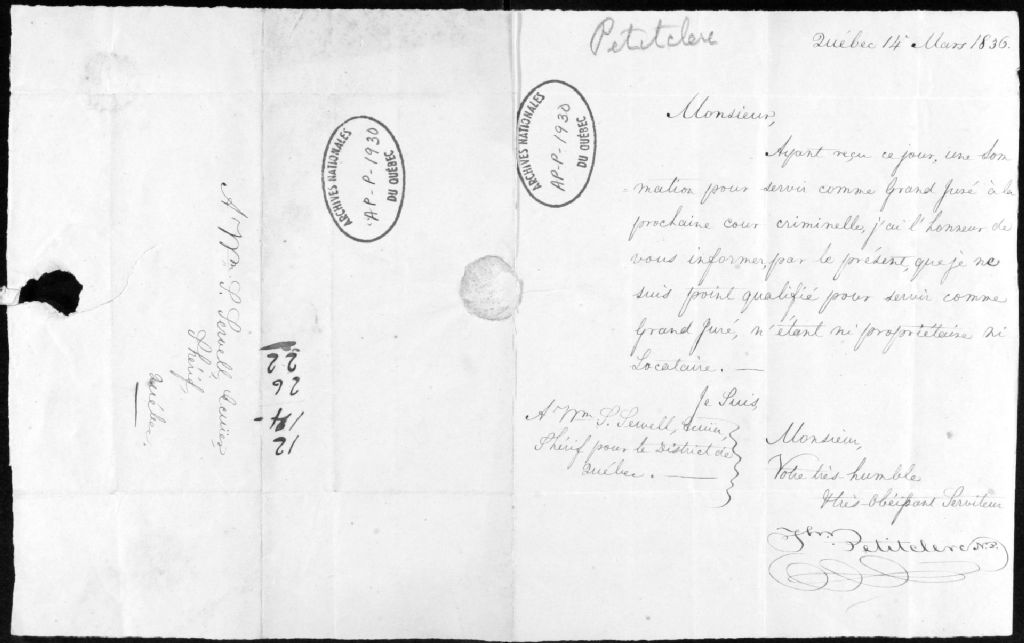 Petitclerc
Québec 14 Mars 1836.
Monsieur,
Ayant reçu ce jour, une som
-mation pour servir comme Grand Juré à la
prochaine cour criminelle, j'ai l'honneur de
vous informer, par le présent, que je ne
suis point qualifié pour servir comme
Grand Juré, n'étant ni propriétaire ni
Locataire. —
Je Suis
Monsieur,
Votre très humble
&très Obéissant Serviteur
Petitclerc N.P.
A Wm. S. Sewell, Ecuier,
Shérif pour le District de
Québec. —
ARCHIVES NATIONALES
AP-P-1930
DU QUÉBEC
ARCHIVES NATIONALES
AP-P-1930
DU QUÉBEC
A Wm. S. Sewell, Ecuier
Shérif,
Québec.
12
14-
26
22